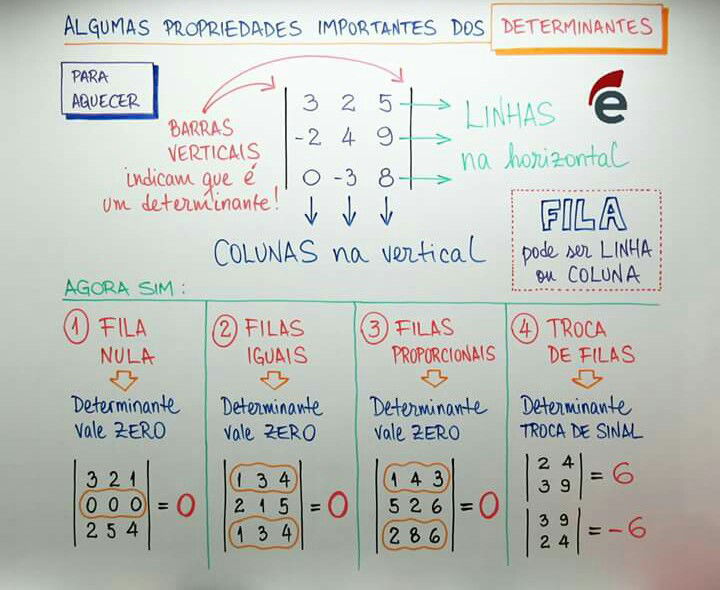 ALGUMAS PROPRIEDADES IMPORTANTES DOS DETERMINANTES
PARA
AQUECER
BARRAS
VERTICAIS
indicam que é
um determinante!
3 2 5
-2 4 9
0 -3 8
LINHAS
na horizontal
e
COLUNAS na vertical
FILA
pode ser LINHA
ou COLUNA
AGORA SIM:
1 FILA
NULA
Determinante
vale ZERO
3 2 1
0 0 0 = 0
2 5 4
2 FILAS
IGUAIS
Determinante
vale ZERO
1 3 4
2 1 5 = 0
1 3 4
3 FILAS
PROPORCIONAIS
Determinante
vale ZERO
1 4 3
5 2 6 = 0
2 8 6
4 TROCA
DE FILAS
Determinante
TROCA DE SINAL
2 4
3 9 = 6
3 9
2 4 = -6